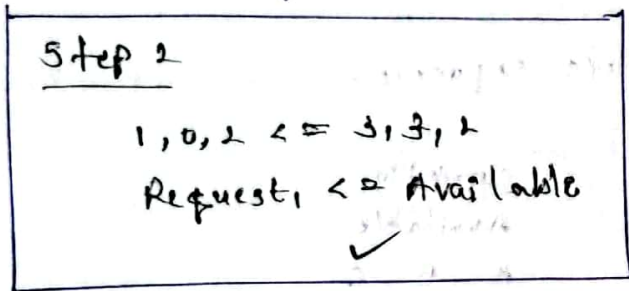 Step 2
1, 0, 2 <= 3, 3, 2
Request₁ <= Available
✓